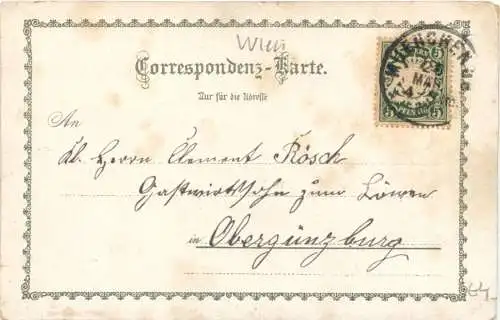 Wien
Correspondenz-Karte.
Nur für die Adresse
MUENCHEN
MAI
5 5
An
Herrn Clement Rösch
Gastwirtssohn zum Löwen
in Obergünzburg